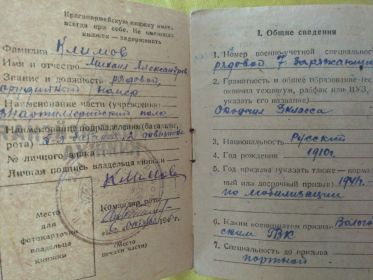 Красноармейскую книжку иметь
всегда при себе. Не имеющих
книжек — задерживать
Фамилия Климов
Имя и отчество Михаил Александров
Звание и должность рядовой,
орудийный номер
Наименование части (учреждения)
Наименование подразделения (батальон,
рота)
№ личного знака
Личная подпись владельца книжки
Климов
Место
для
фотокарточки
владельца
книжки
Командир роты
Место
печати части)
I. Общие сведения
1. Номер военно-учетной специальности
рядовой 7 заряжающий
2. Грамотность и общее образование (если
окончил техникум, рабфак или ВУЗ,
указать его название)
Окончил 3 класса
3. Национальность Русский
4. Год рождения 1910г.
5. Год призыва (указать также — нормаль-
ный или досрочный призыв) 1941г.
по мобилизации
6. Каким военкоматом призван Волого
ским РВК
7. Специальность до призыва
портной